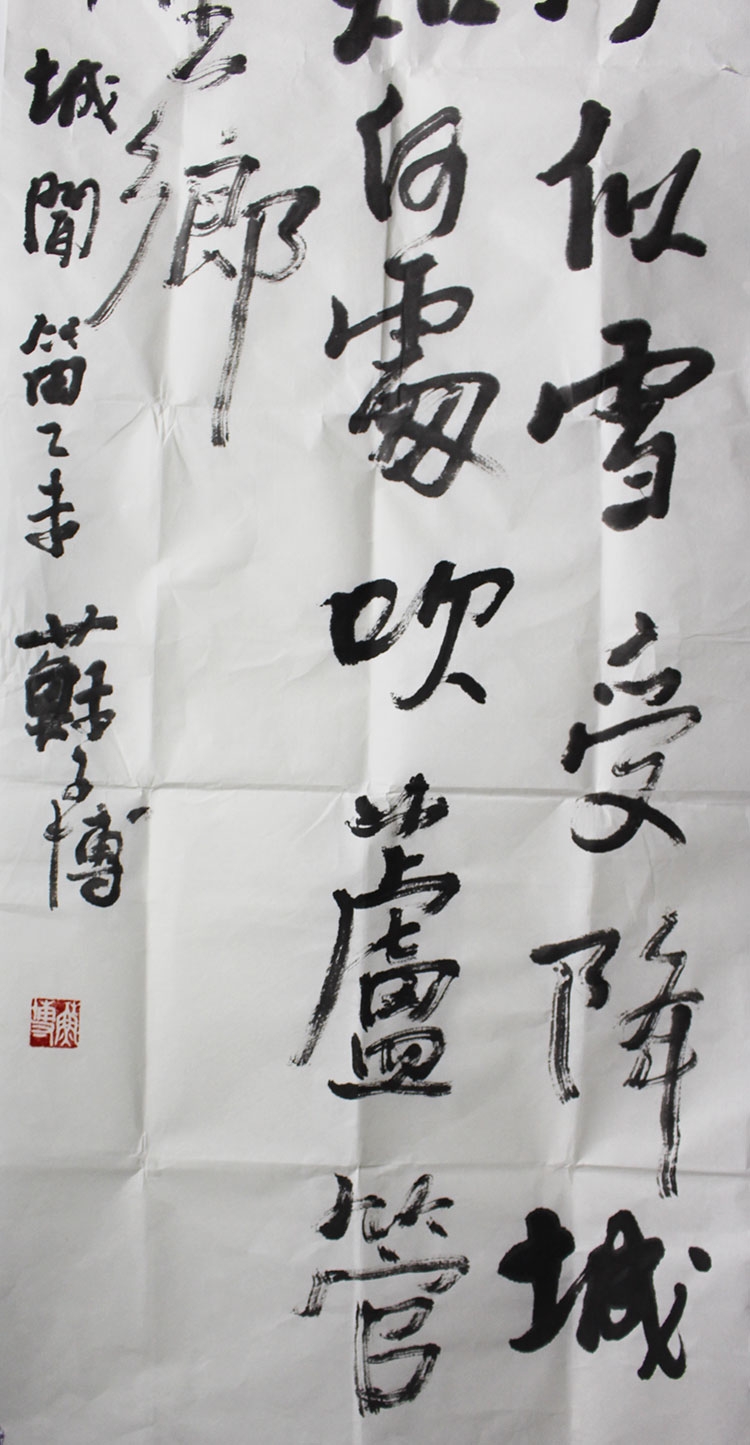 似雪受降城
何處吹蘆管
鄉
城聞笛乙未蘇子博